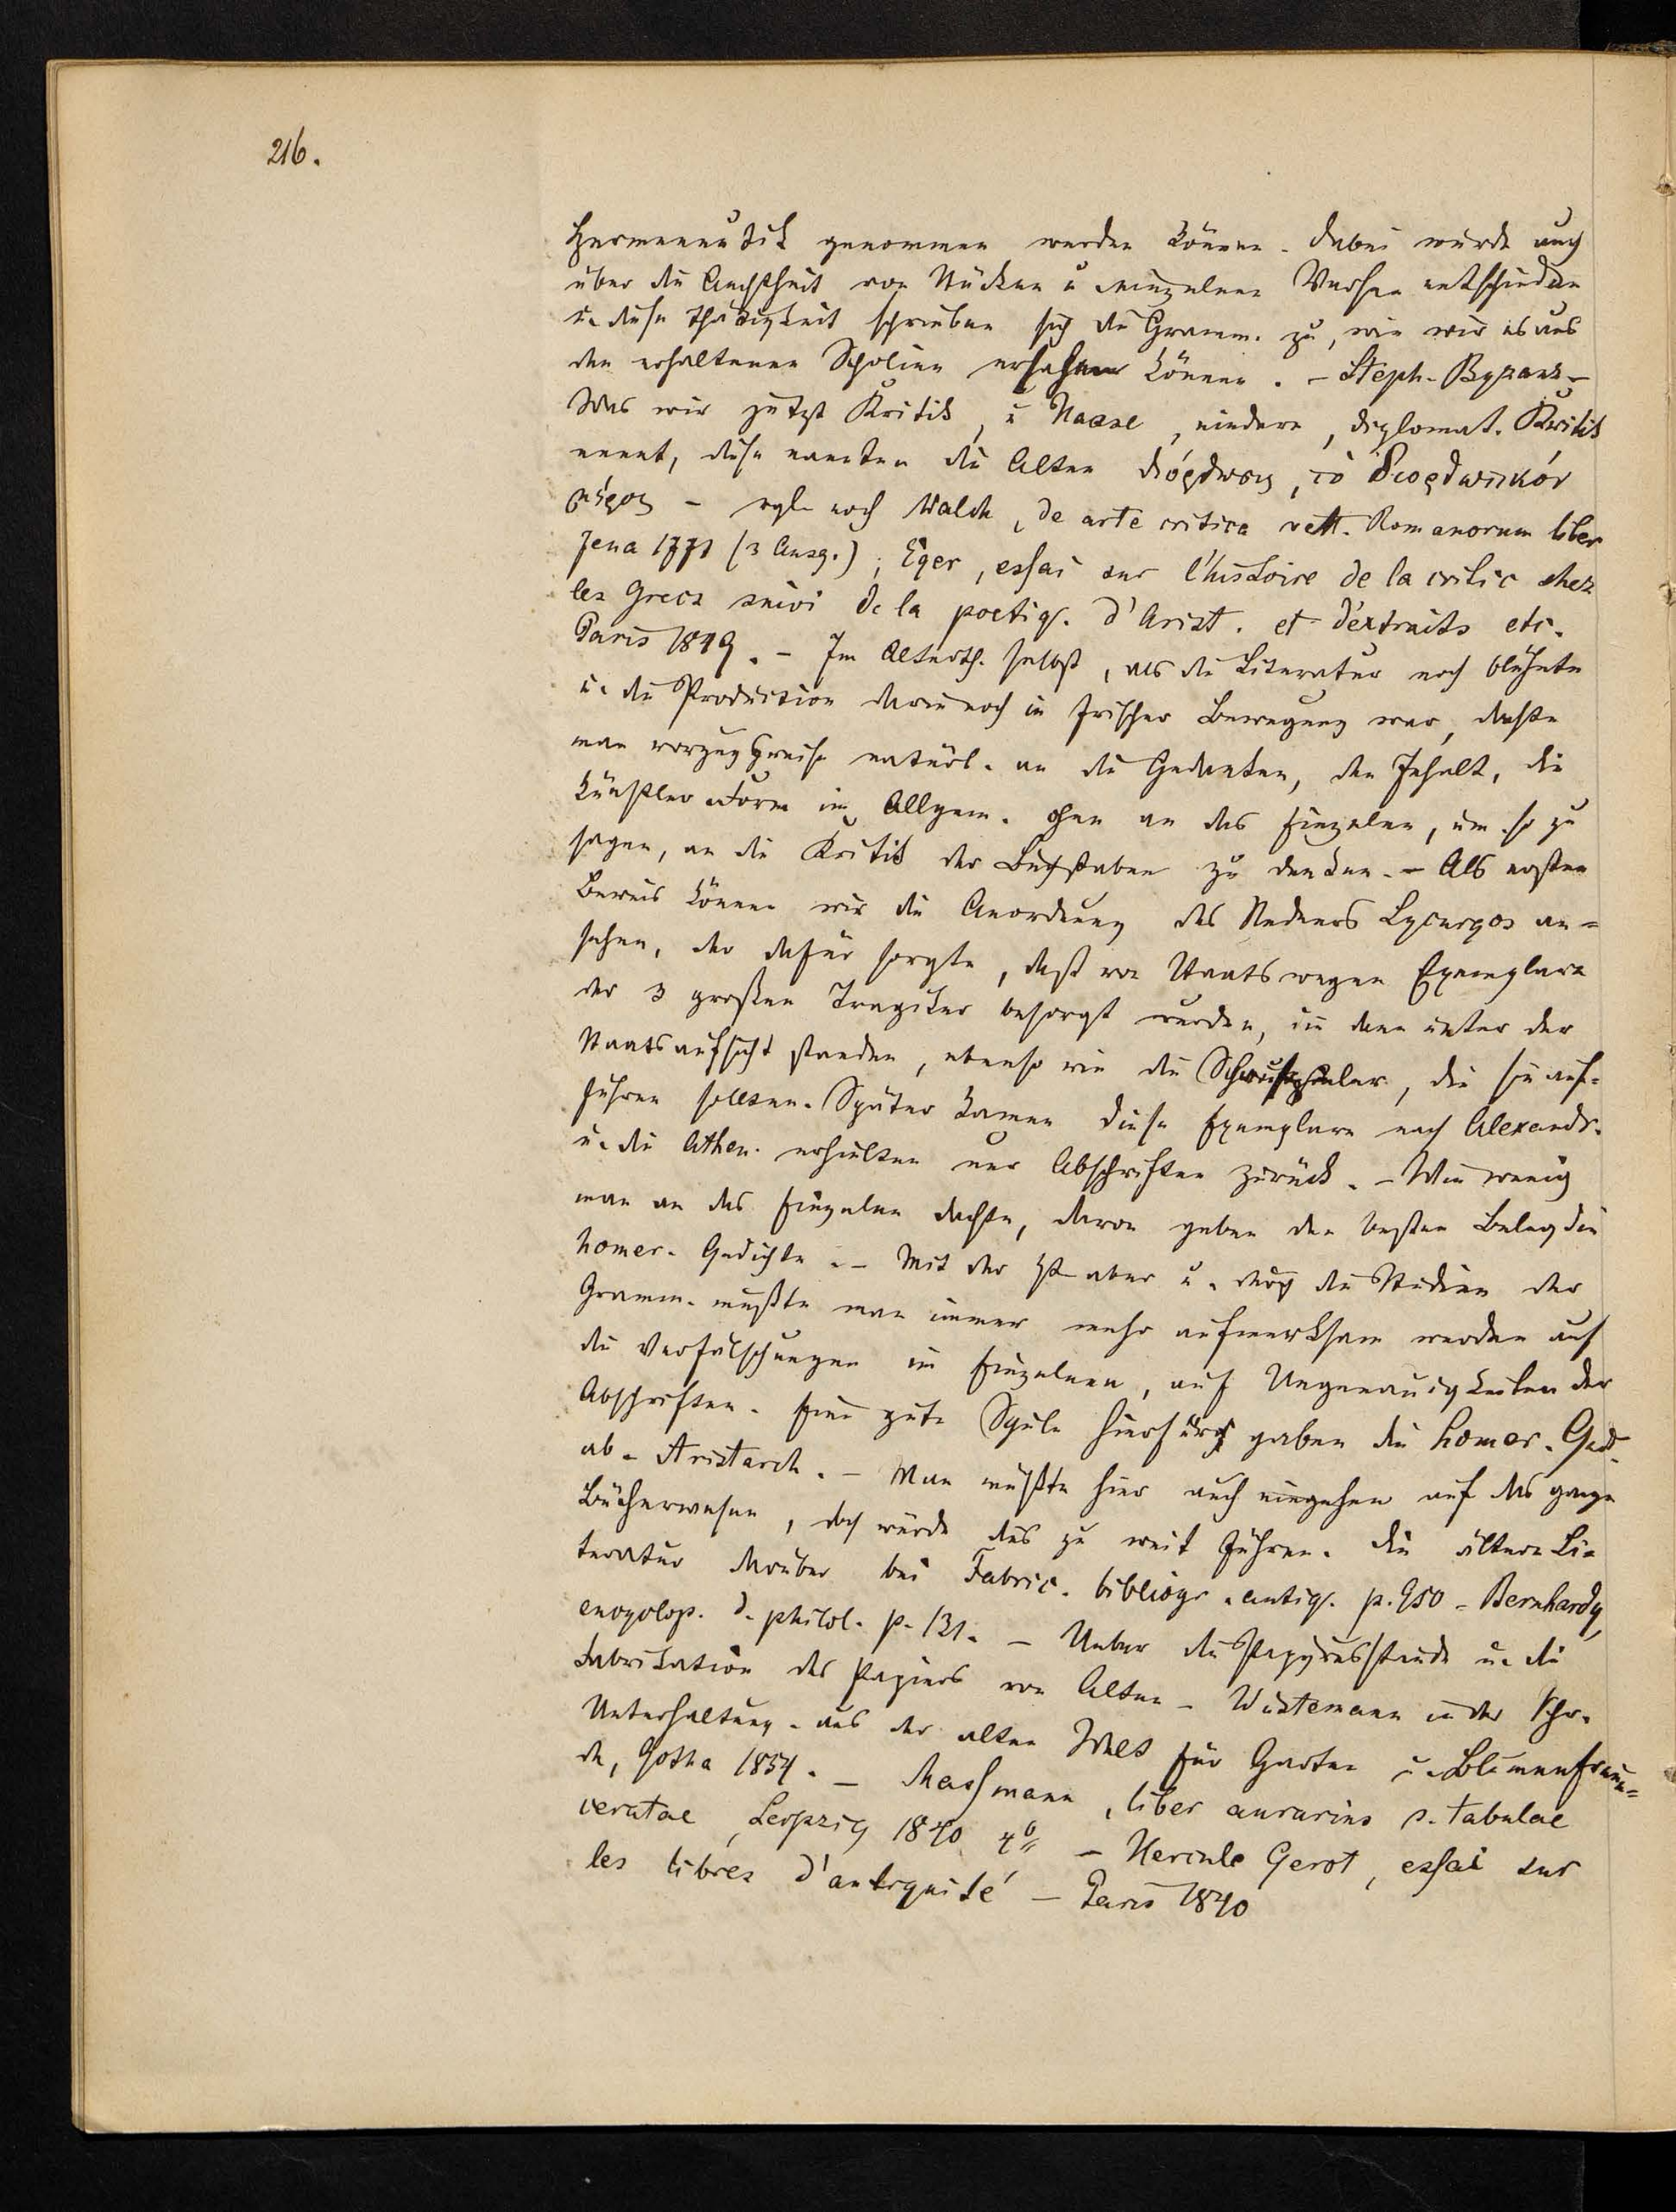 216.
Hermeneutik genommen werden können. Dabei wurde auch
über die Aechtheit von Stücken u einzelnen Versen entschieden
u. diese Thätigkeit schrieben sich die Gramm. zu, wie wir es aus
den erhaltenen Scholien ersehen können. – Steph. Byzanz –
Was wir jetzt Kritik, u Haase, niedere, diplomat. Kritik
nennt, diese nannten die Alten διόρθωσις, τὸ διορθωτικόν
μέρος – vgl. noch Walch, de arte critica vett. Romanorum liber
Jena 1771 (3 Ausg.); Eger, essai sur l'histoire de la critic chez
les Grecs suivi de la poetiq. d'Arist. et d'extraits etc.
Paris 1849. – Im Alterth. selbst, als die Literatur noch blühete
u. die Production darin noch in frischer Bewegung war, dachte
man vorzugsweise natürl. an die Gedanken, den Inhalt, die
Künstler. Form im Allgem. ohne an das Einzelne, um so zu
sagen, an die Kritik der Buchstaben zu denken. – Als ersten
Beweis können wir die Anordnung des Redners Lycurgos an=
sehen, der dafür sorgte, daß von Staatswegen Exemplare
der 3 großen Tragiker besorgt wurden, die dann unter der
Staatsaufsicht standen, ebenso wie die Schauspieler, die sie auf=
führen sollten. Später kamen diese Exemplare nach Alexandr.
u. die Athen. erhielten nur Abschriften zurück. – Wie wenig
man an das Einzelne dachte, davon geben den besten Beleg die
homer. Gedichte. – Mit der Zt aber u. durch die Studien der
Gramm. mußte man immer mehr aufmerksam werden auf
die Verfälschungen im Einzelnen, auf Ungenauigkeiten der
Abschriften. Eine gute Schule hierfür gaben die homer. Ged.
ab. Aristarch. – Man müßte hier auch eingehen auf das ganze
Bücherwesen, doch würde dies zu weit führen. Die ältere Li=
teratur darüber bei Fabric. bibliogr. antiq. p. 950 – Bernhardy,
encyclop. d. philol. p. 131. – Ueber die Papyrusstaude u. die
Fabrikation des Papiers von Alten – Wüstemann in der Schr.
Unterhaltung. aus der alten Welt für Garten u. Blumenfreun=
de, Gotha 1854. – Massmann, liber aurarius s. tabulae
ceratae, Leipzig 1840 4º – Hercule Gerot, essai sur
les libres d'antiquité – Paris 1840